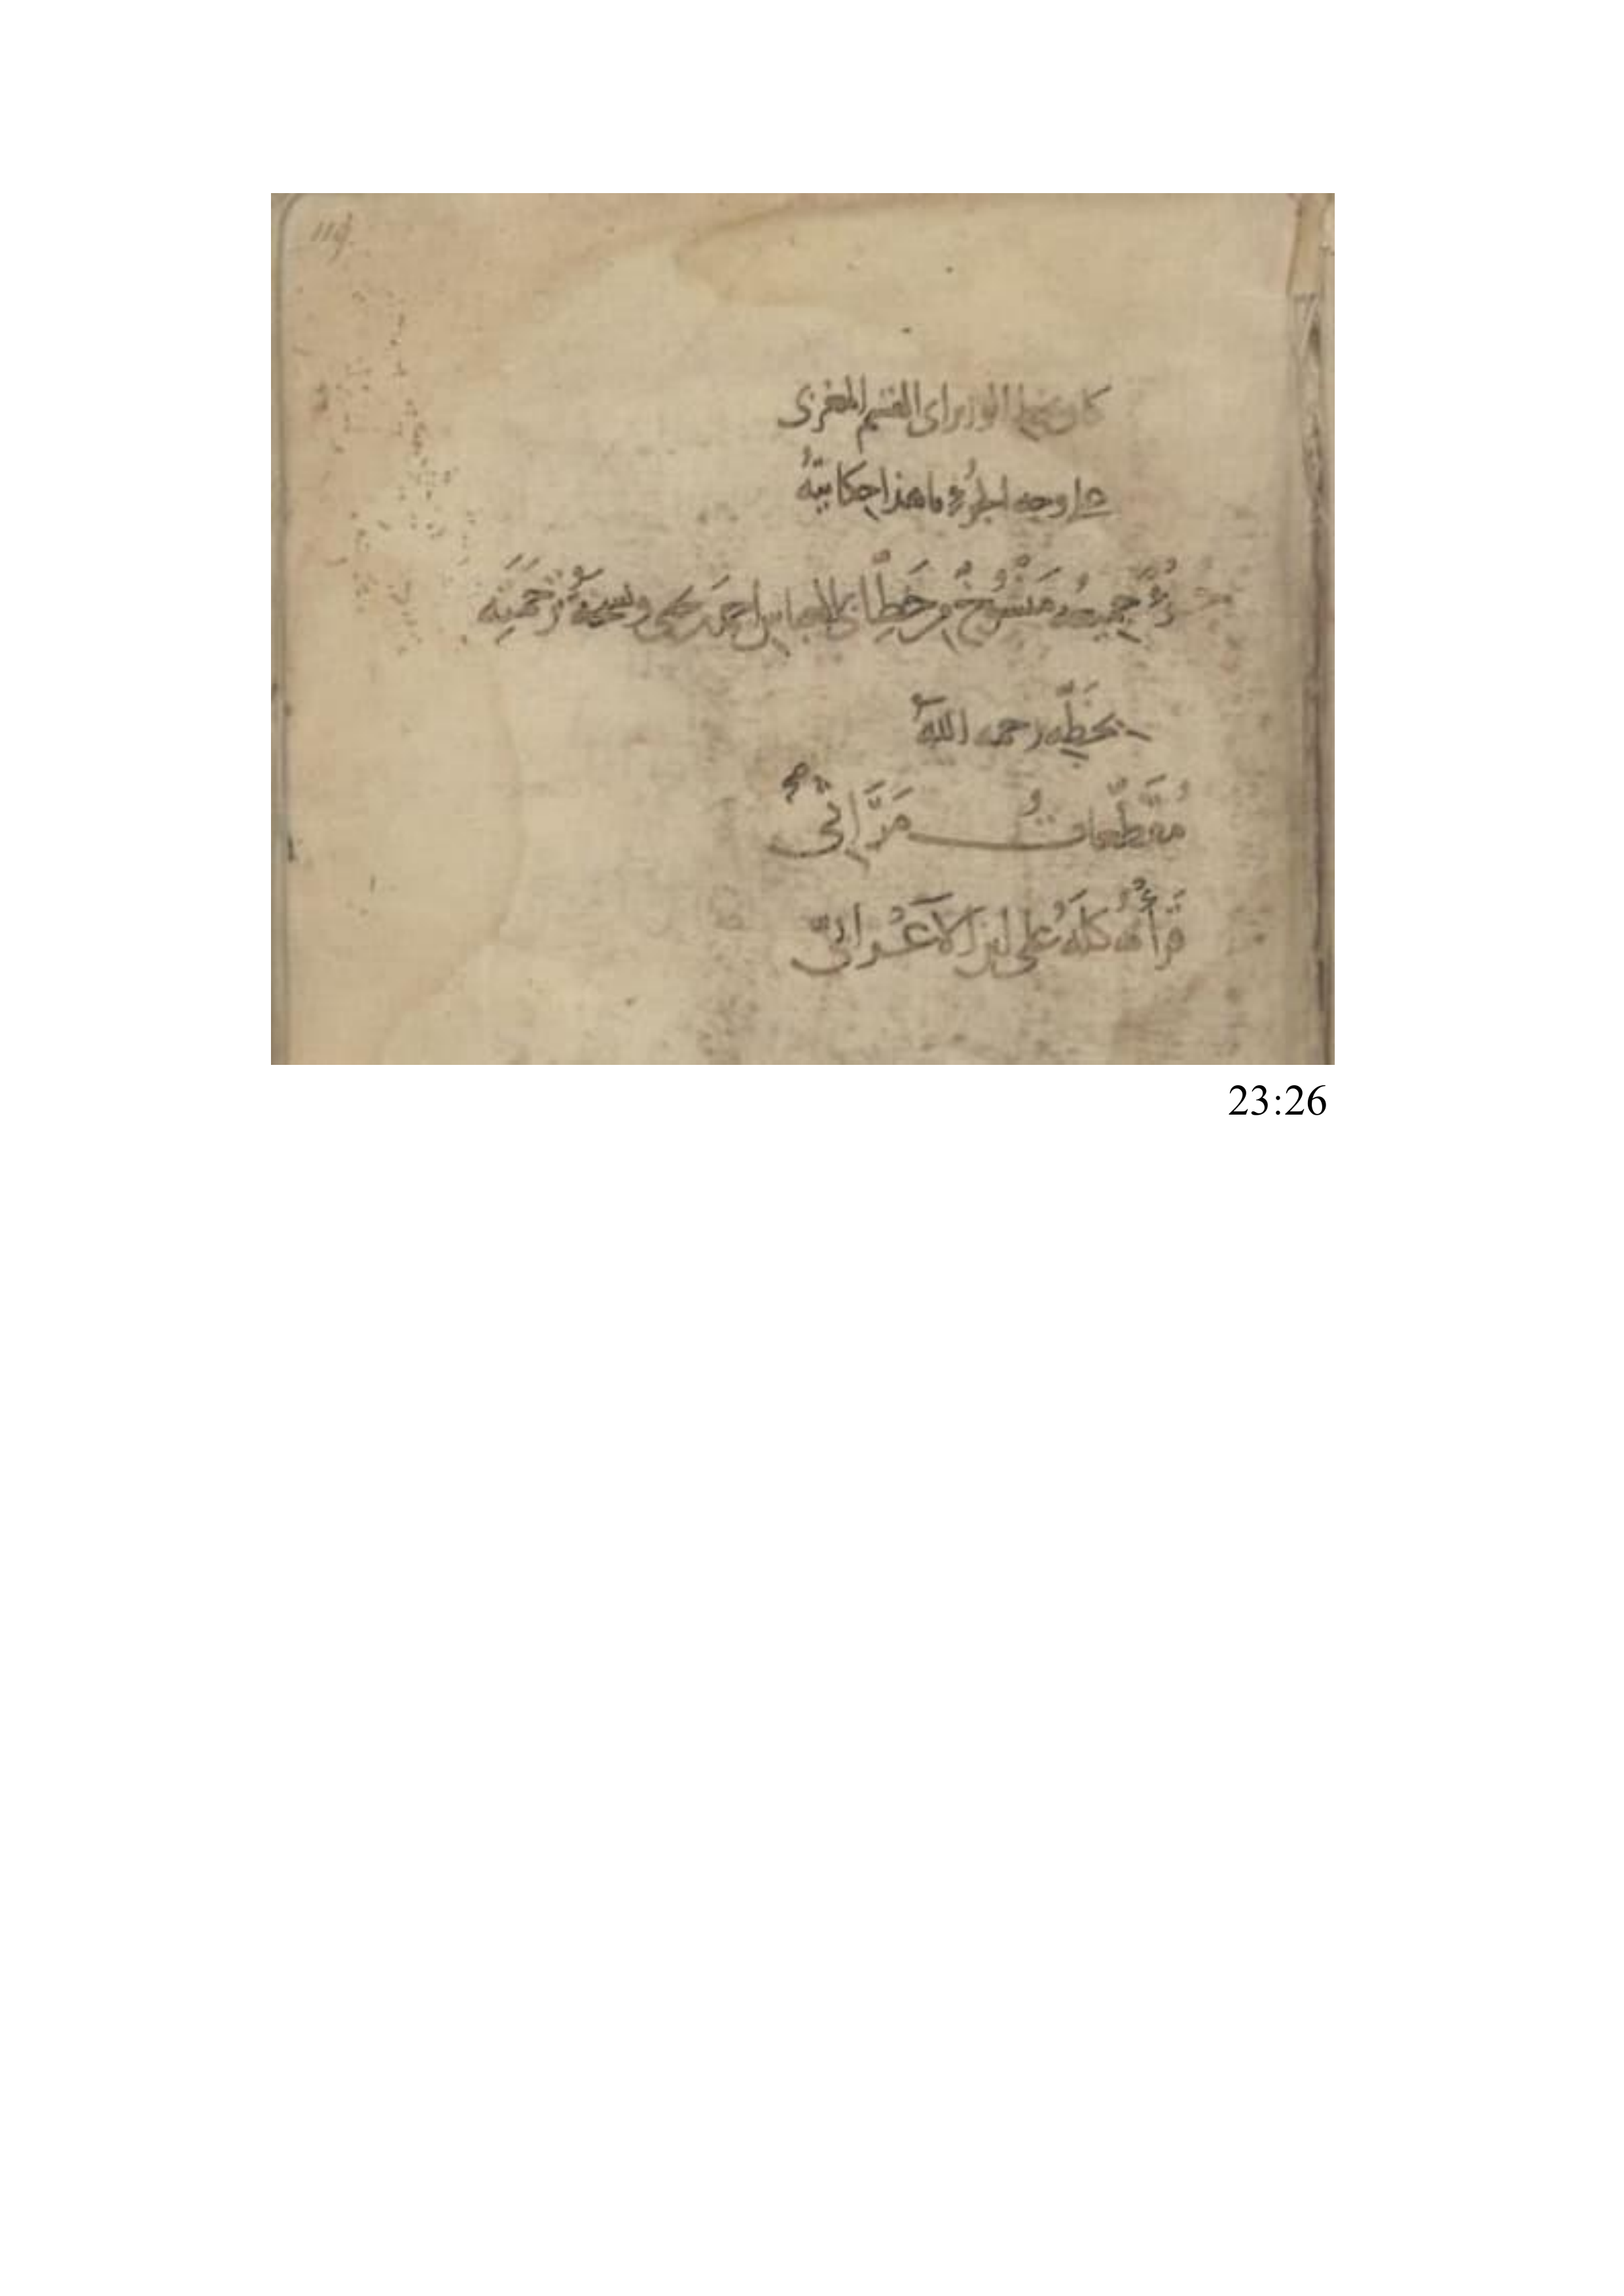 119
كان بخط الوزير ابي القسم المغربي
على وجه الجزء ما هذا حكايته
جزءٌ جميعه منسوخٌ من خطِّ ابي العباس احمد بن يحيى ونسخةُ ترجمته
بخطِّه رحمه اللهُ
مُقَطَّعاتُ مَرَاثٍ
قَرَأتُهُ كلَّهُ على ابن الاَعْرابيّ
23:26